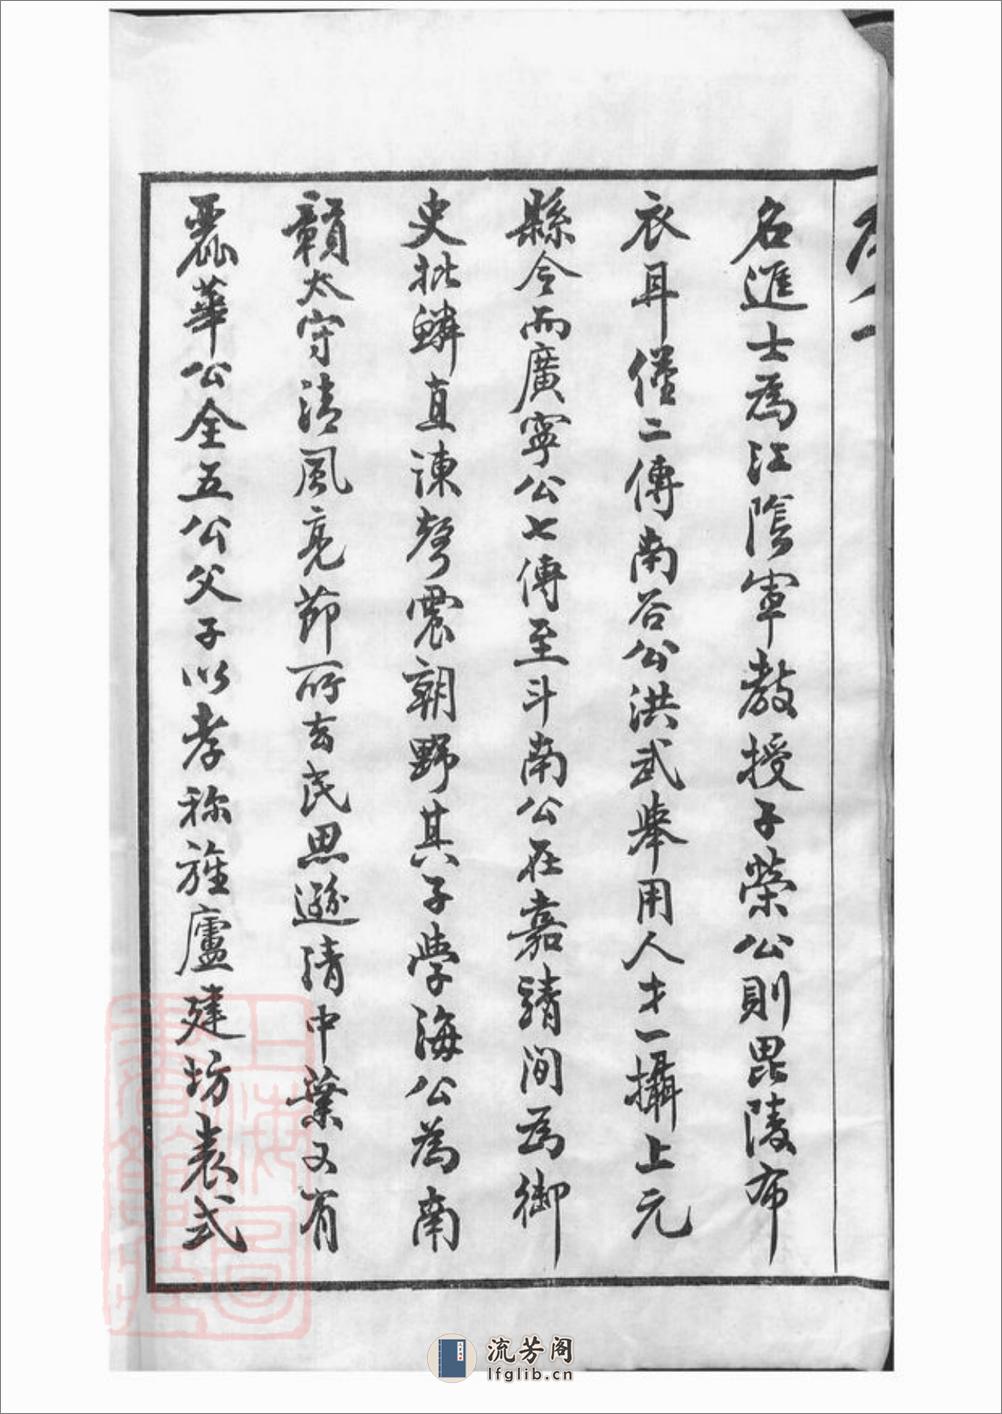 名進士為江陰軍教授子榮公則毘陵布
衣耳僅二傳南谷公洪武舉用人才一攝上元
縣令而廣寧公七傳至斗南公在嘉靖间為御
史批鱗直諫聲震朝野其子學海公為南
贛太守清風亮節所去民思遜清中葉又有
麗華公全五公父子以孝称旌廬建坊表式
上海圖書館藏
流芳阁
lfglib.cn